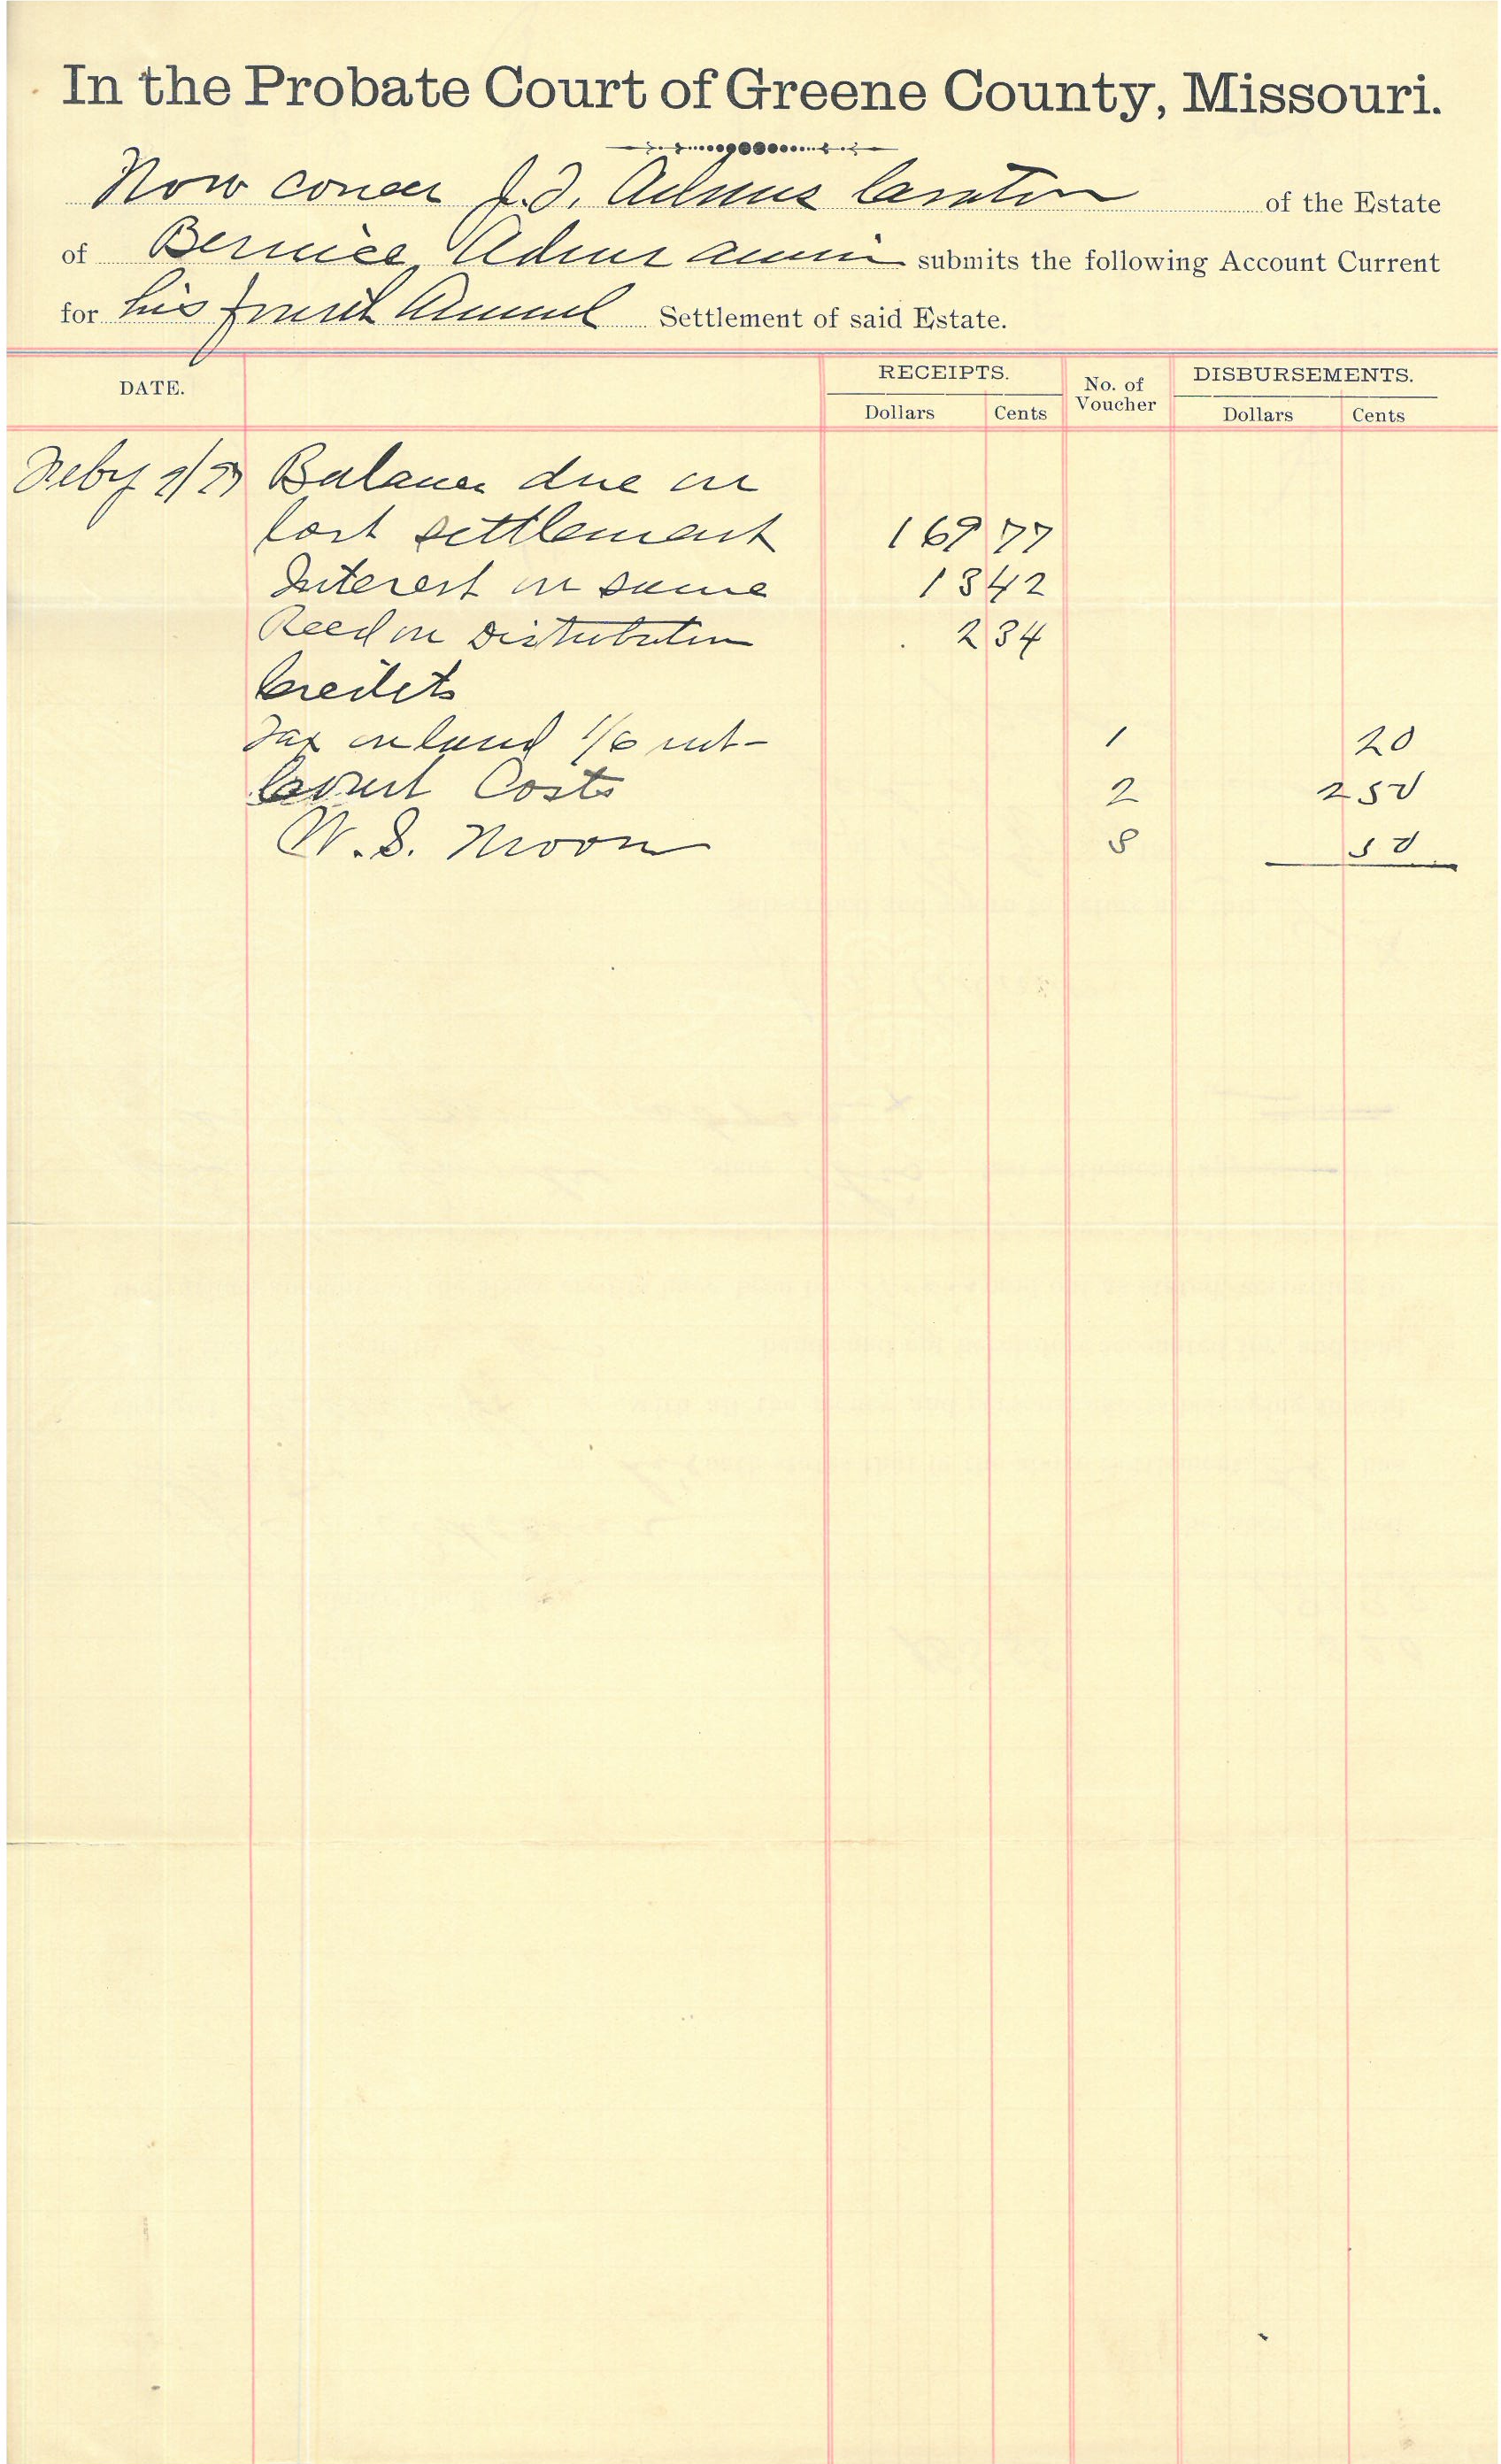 In the Probate Court of Greene County, Missouri.
Now comes J. D. Adams Curator of the Estate
of Bernice Adams minor submits the following Account Current
for his fourth Annual Settlement of said Estate.
DATE. RECEIPTS. No. of Voucher DISBURSEMENTS.
Dollars Cents Dollars Cents
Feby Balance due on
last settlement 169 77
Interest on same 13 42
Recd on Distribution 2 34
Credits
Tax on land 1/6 int- 1 20
Court Costs 2 2 50
W. S. Moon 3 50